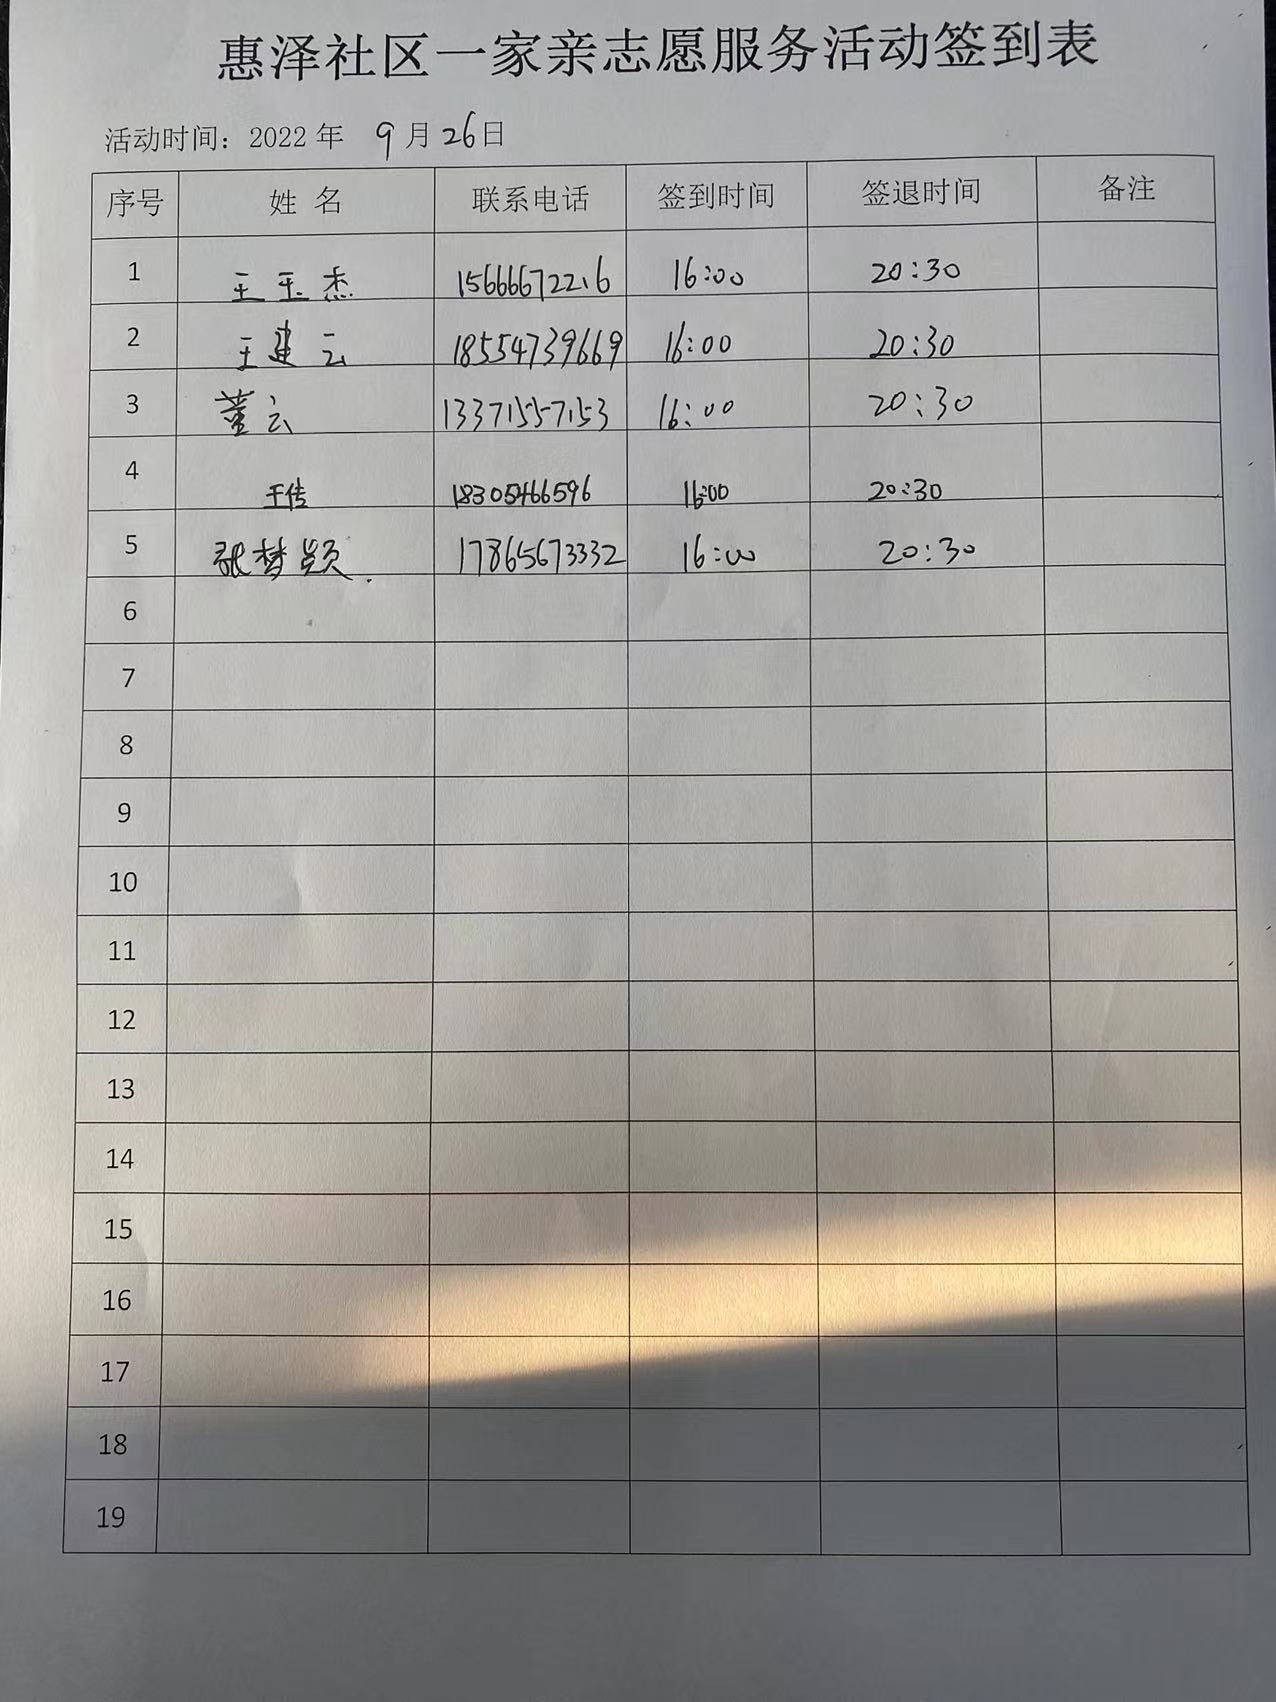 惠泽社区一家亲志愿服务活动签到表
活动时间：2022 年 9 月 26 日
序号 姓 名 联系电话 签到时间 签退时间 备注
1 王玉杰 15666672216 16:00 20:30
2 王建云 18554739669 16:00 20:30
3 董云 13371557153 16:00 20:30
4 王传 18305466596 16:00 20:30
5 张梦颖 17865673332 16:00 20:30
6
7
8
9
10
11
12
13
14
15
16
17
18
19